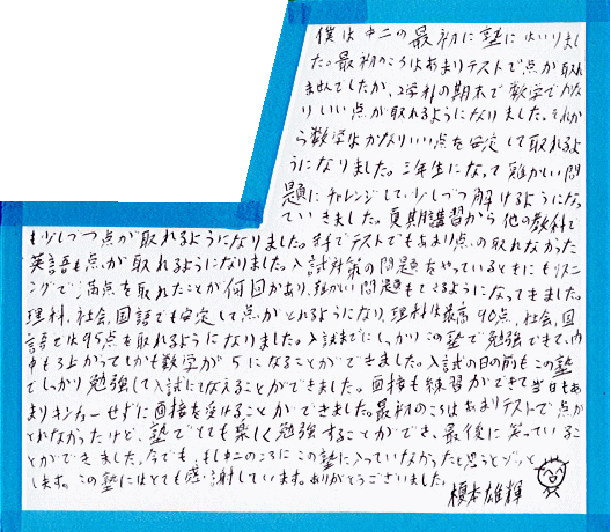 僕は中二の最初に塾にはいりまし
た。最初のころはあまりテストで点が取れ
ませんでしたが、2学期の期末で数学でかな
りいい点が取れるようになりました。それか
ら数学はかなりいい点を安定して取れるよ
うになりました。三年生になって難かしい問
題にチャレンジして、少しづつ解けるようになっ
ていきました。夏期講習から他の教科で
も少しづつ点が取れるようになりました。苦手でテストでもあまり点の取れなかった
英語も点が取れるようになりました。入試対策の問題をやっているときにもリスニ
ングで満点を取れたことが何回かあり、難かしい問題もできるようになってきました。
理科、社会、国語でも安定して点がとれるようになり、理科は最高90点、社会、国
語では95点を取れるようになりました。入試までにしっかりこの塾で勉強できて、内
申も上がってしかも数学が5になることができました。入試の日の前もこの塾
でしっかり勉強して入試にそなえることができました。面接も練習ができて当日もあ
まりキンチョーせずに面接を受けることができました。最初のころはあまりテストで点が
とれなかったけど、塾でとても楽しく勉強することができ、最後に笑っているこ
とができました。今でも、もし中二のころにこの塾に入っていなかったと思うとゾッと
します。この塾にはとても感謝しています。ありがとうございました。
榎本雄輝